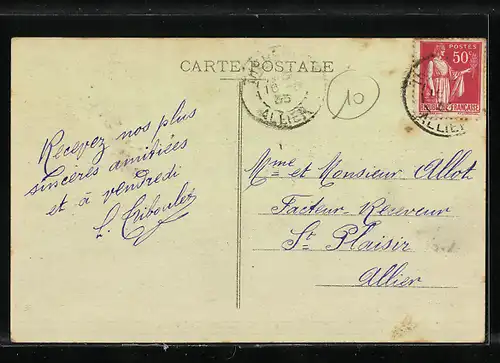 CARTE POSTALE
POSTES
50c
FRANÇAISE
ALLIER
ALLIER
10
Recevez nos plus
sincères amitiées
et à vendredi
L. Tiboulet
Mme et Monsieur Allot
Facteur Receveur
St Plaisir
Allier